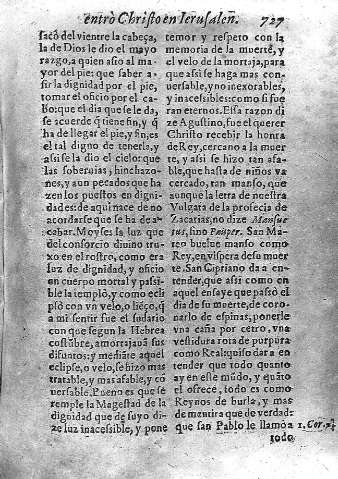 entrò Christo en Ierusalẽ. 727
sacò del vientre la cabeça,
la de Dios le dio el mayo
razgo, a quien asio al ma
yor del pie: que saber a-
sir la dignidad por el pie,
tomar el oficio por el ca-
bo: que el dia que se le da,
se acuerde q̃ tiene fin, y q̃
ha de llegar el pie, y fin, es
el tal digno de tenerla, y
assi se la dio el cielo: que
las soberuias, hinchazo-
nes, y aun pecados que ha
zen los puestos en digni-
dades: de aqui nace de no
acordarse que se ha de a-
cabar. Moyses la luz que
del consorcio diuino tru-
xo en el rostro, como era
luz de dignidad, y oficio
en cuerpo mortal y passi-
ble la templò, y como ecli
psò con vn velo, o liẽço, q̃
a mi sentir fue el sudario
con que segun la Hebrea
costũbre, amortajauã sus
difuntos: y mediãte aquel
eclipse, o velo, se hizo mas
tratable, y mas afable, y cõ
uersable. Bueno es que se
temple la Magestad de la
dignidad que de suyo di-
ze luz inacessible, y pone
temor y respeto con la
memoria de la muerte, y
el velo de la mortaja, para
que assi se haga mas con-
uersable, y no inexorables,
y inacessibles: como si fue
ran eternos. Essa razon di
ze Agustino, fue el querer
Christo recebir la honra
de Rey, cercano a la muer
te, y assi se hizo tan afa-
ble, que hasta de niños va
cercado, tan manso, que
aunque la letra de nuestra
Vulgara de la profecia de
Zacarias, no dize Mansue
tus, sino Pauper. San Ma-
teo buelue manso como
Rey, en vispera de su muer
te. San Cipriano da a en-
tender, que assi como en
aquel ensaye que passò el
dia de su muerte, de coro-
narlo de espinas, ponerle
vna caña por cetro, vna
vestidura rota de purpura
como Real: quiso dar a en
tender que todo quanto
ay en este mũdo, y quãto
el ofrece, todo es como
Reynos de burla, y mas
de mentira que de verdad:
que san Pablo le llamò a 1. Cor. 7.
todo